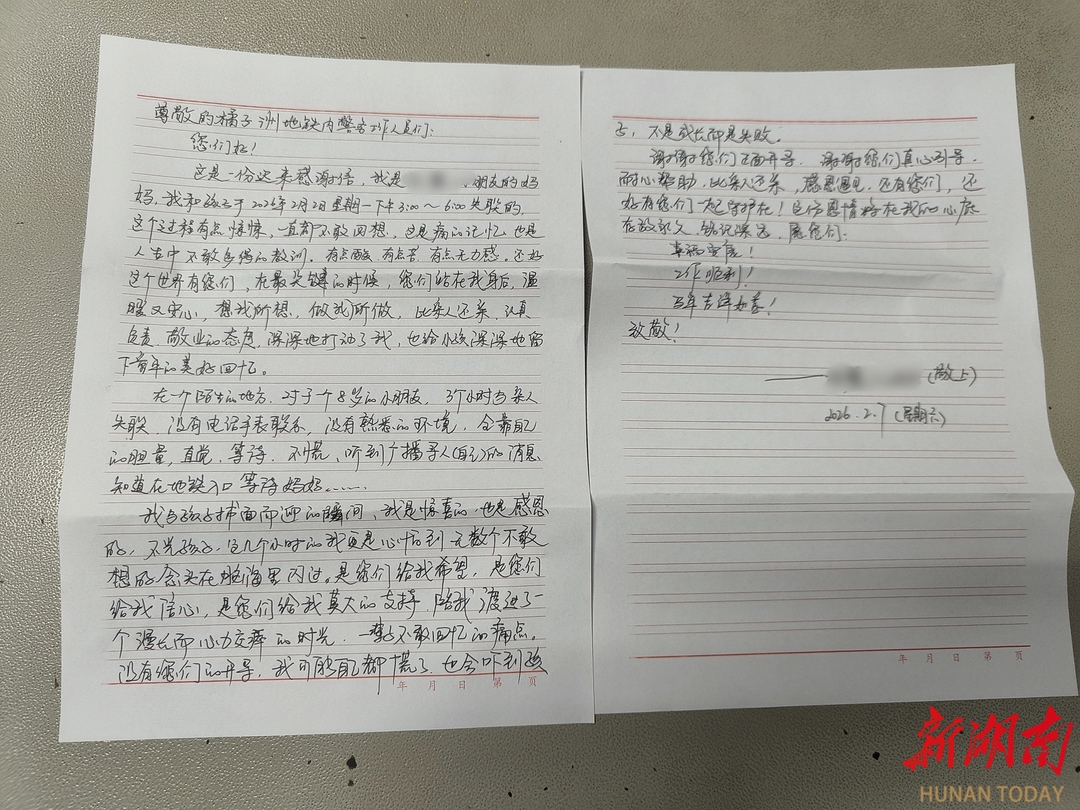 尊敬的橘子洲地铁内警务工作人员们:
您们好!
这是一份迟来感谢信,我是 朋友的妈
妈,我和孩子于2026年2月2日星期一下午3:00~6:00失联的,
这个过程有点惊悚,一直都不敢回想,这是痛的记忆,也是
人生中不敢忘得的教训。有点酸,有点苦,有点无力感,还好
这个世界有您们,在最关键的时候,您们站在我身后,温
暖又安心,想我所想,做我所做,比亲人还亲,认真
负责,敬业的态度,深深地打动了我,也给小孩深深地留
下童年的美好回忆。
在一个陌生的地方,对于个8岁的小朋友,3个小时与亲人
失联,没有电话手表联系,没有熟悉的环境,全靠自己
的胆量,直觉,等待,不慌,听到广播寻人(自己)的消息
知道在地铁入口等待妈妈……
我与孩子扑面而迎的瞬间,我是惊喜的,也是感恩
的,不光孩子,这几个小时的我更是心悸到无数个不敢
想的念头在脑海里闪过。是您们给我希望,是您们
给我信心,是您们给我莫大的支持,陪我渡过了一
个漫长而心力交瘁的时光,一辈子不敢回忆的痛点。
没有您们的开导,我可能自己都慌了,也会吓到孩
年 月 日 第 页
子,不是成长而是失败。
谢谢您们正面开导,谢谢您们真心引导,
耐心帮助,比亲人还亲,感恩遇见,还有您们,还
好有您们一起守护在!这份恩情将在我的心底
存放,铭记深远,愿您们:
幸福安康!
工作顺利!
马年吉祥如意!
致敬!
(敬上)
2026.2.7(星期六)
年 月 日 第 页
新湖南
HUNAN TODAY